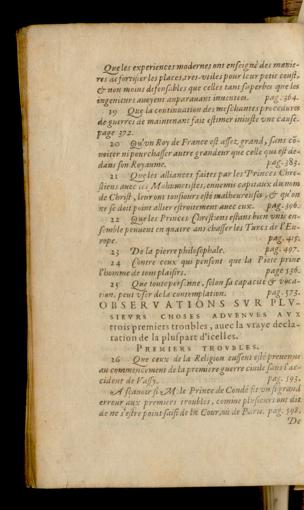 Que les experiences modernes ont enseigné des manie-
res de fortifier les places, tres-vtiles pour leur petit coust,
& non moins defensibles que celles tant superbes que les
ingenieurs auoyent auparauant inuentees. pag. 364.
19 Que la continuation des meschantes procedures
de guerres de maintenant fait estimer iniuste vne cause.
page 372.
20 Qu'vn Roy de France est assez grand, sans cō-
uoiter ni pourchasser autre grandeur que celle qui est de-
dans son Royaume. pag. 383.
21 Que les alliances faites par les Princes Chre-
stiens auec les Mahumetistes, ennemis capitaux du nom
de Christ, leur ont tousiours esté malheureuses, & qu'on
ne se doit point allier estroitement auec eux. pag. 396.
22 Que les Princes Chrestiens estans bien vnis en-
semble peuuent en quatre ans chasser les Turcs de l'Eu-
rope. pag. 415.
23 De la pierre philosophale. pag. 497.
24 Contre ceux qui pensent que la Pieté priue
l'homme de tous plaisirs. page 536.
25 Que toute personne, selon sa capacité & voca-
tion, peut vser de la contemplation. pag. 573.
OBSERVATIONS SVR PLV-
SIEVRS CHOSES ADVENVES AVX
trois premiers troubles, auec la vraye decla-
ration de la pluspart d'icelles.
PREMIERS TROVBLES.
26 Que ceux de la Religion eussent esté preuenus
au commencement de la premiere guerre ciuile sans l'ac-
cident de Vassy. pag. 593.
A sçauoir si M. le Prince de Condé fit vn si grand
erreur aux premiers troubles, comme plusieurs ont dit
de ne s'estre point saisi de la Cour, ni de Paris. pag. 598.
De